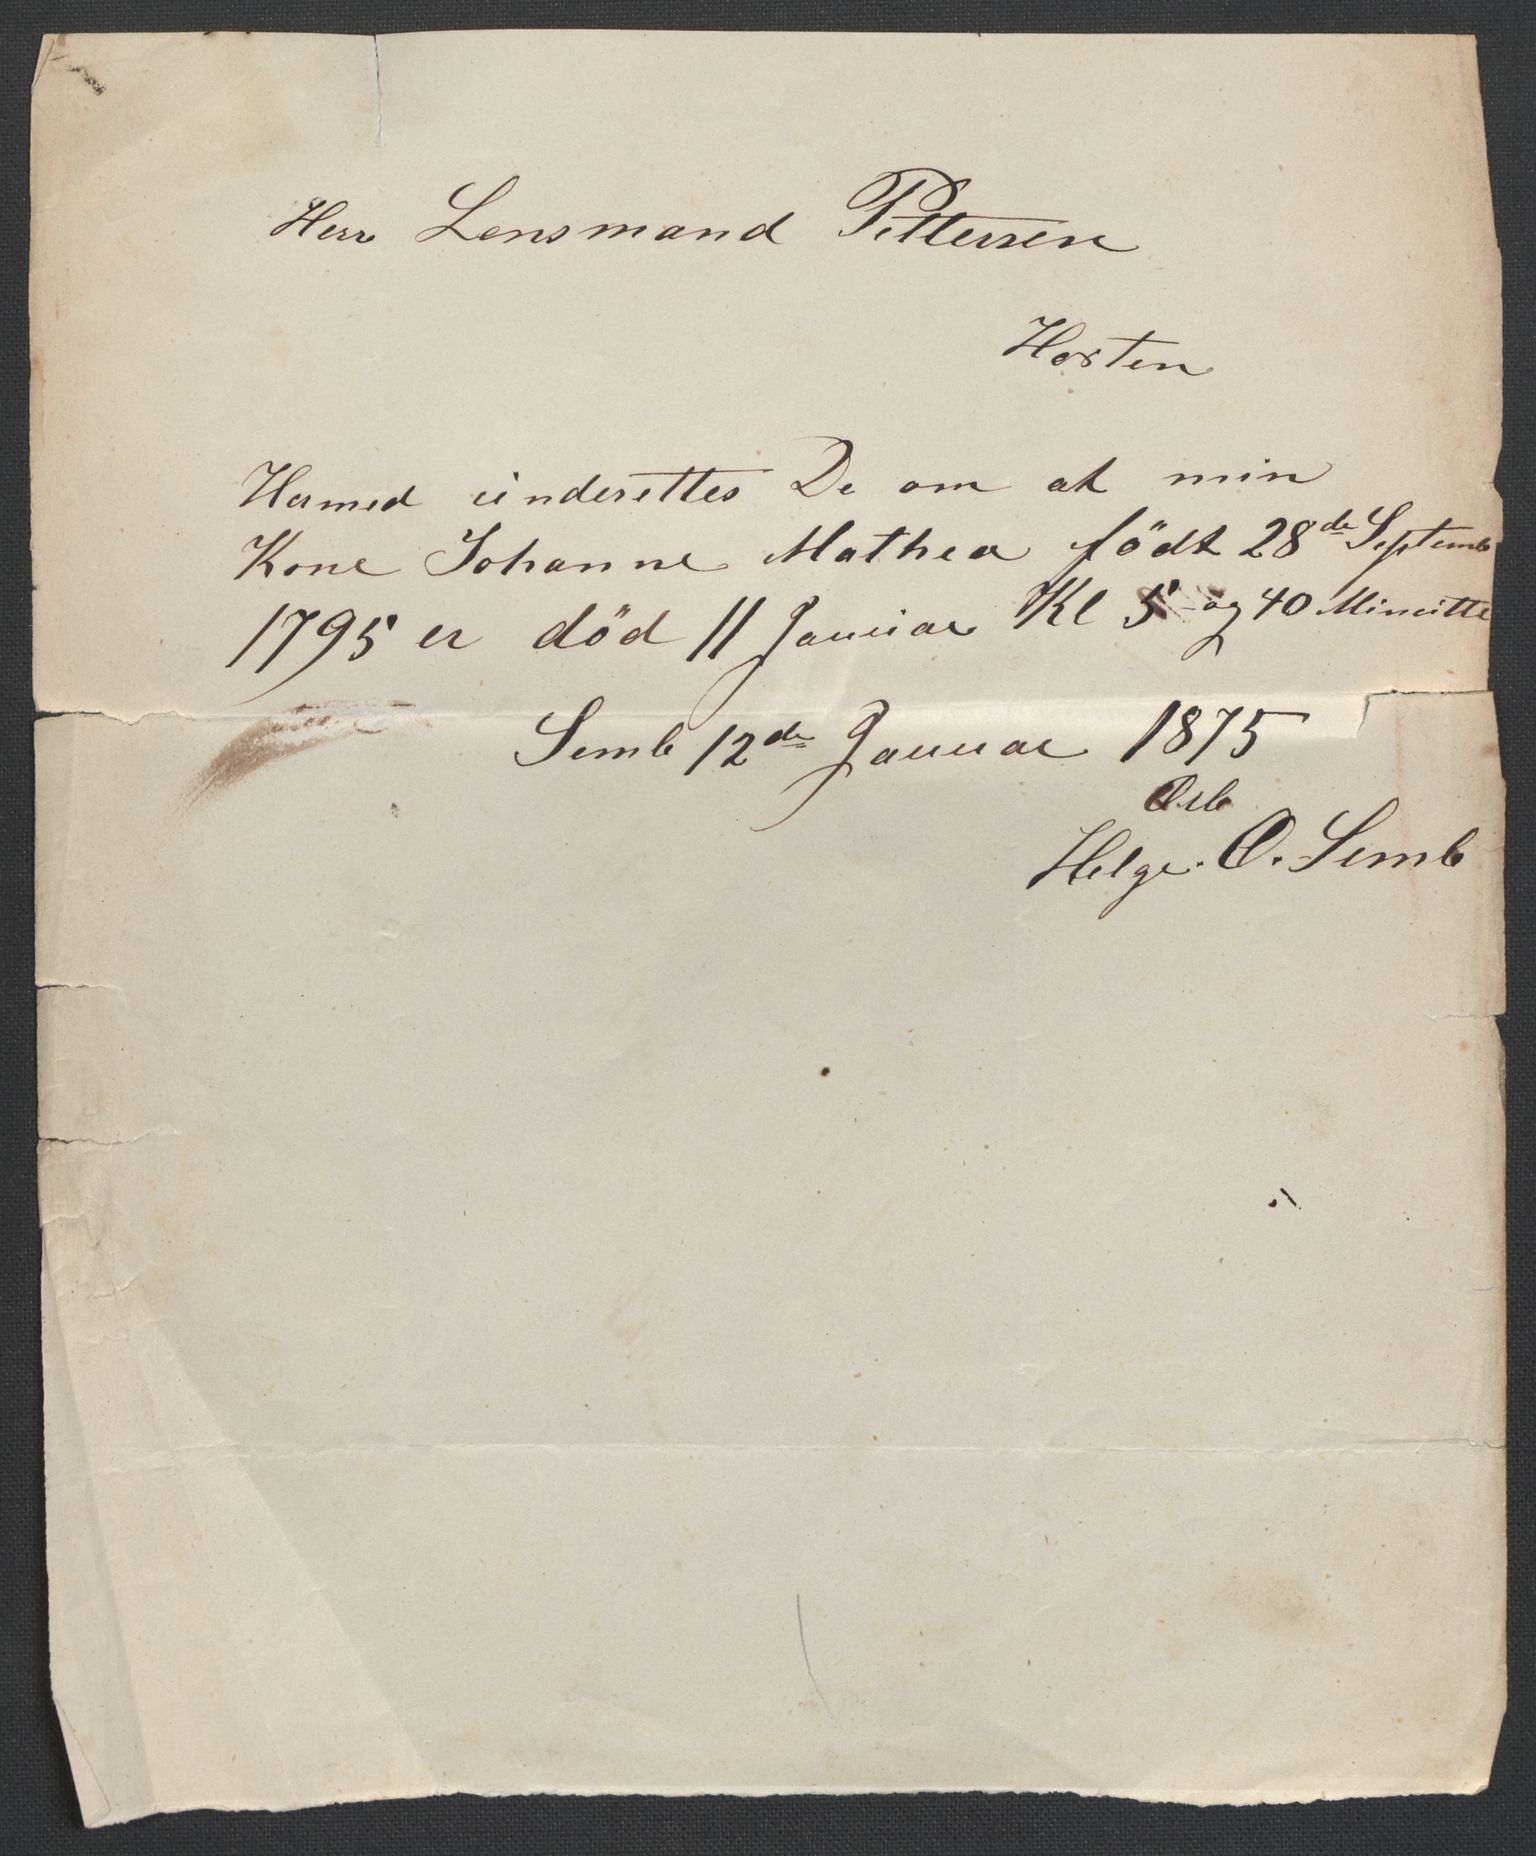 Herr Lensmand Pettersen
Horten
Hermed underettes De om at min
Kone Johanne Mathea födt 28de Septemb
1795 er död 11 Januar Kl 5 og 40 Minutte
Semb 12de Januar 1875
Ærb
Helge. O. Semb